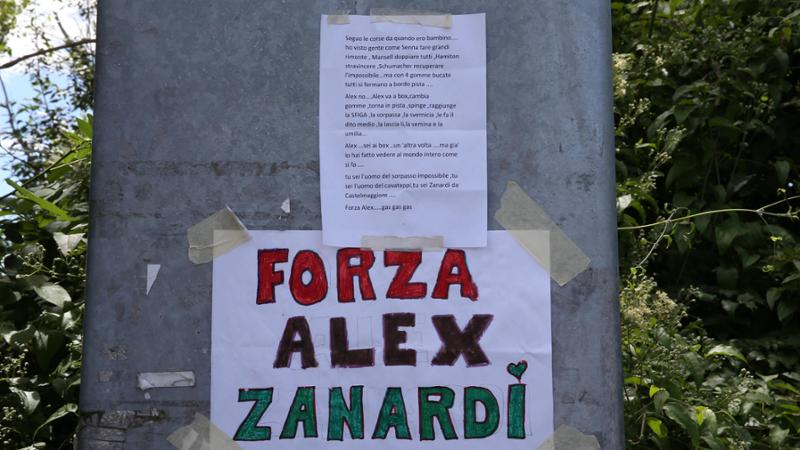 Seguo le corse da quando ero bambino....
ho visto gente come Senna fare grandi
rimonte , Mansell doppiare tutti ,Hamiton
stravincere ,Schumacher recuperare
l'impossibile ...ma con 4 gomme bucate
tutti si fermano a bordo pista ....
Alex no....Alex va a box,cambia
gomme ,torna in pista ,spinge ,raggiunge
la SFIGA ,la sorpassa ,la svernicia ,le fa il
dito medio ,la lascia lì,la semina e la
umilia...
Alex ...sei ai box ..un 'altra volta ....ma gia'
lo hai fatto vedere al mondo intero come
si fa ....
tu sei l'uomo del sorpasso impossibile ,tu
sei l'uomo del cavatappi,tu sei Zanardi da
Castelmaggiore ....
Forza Alex.....gas gas gas
FORZA
ALEX
ZANARDI